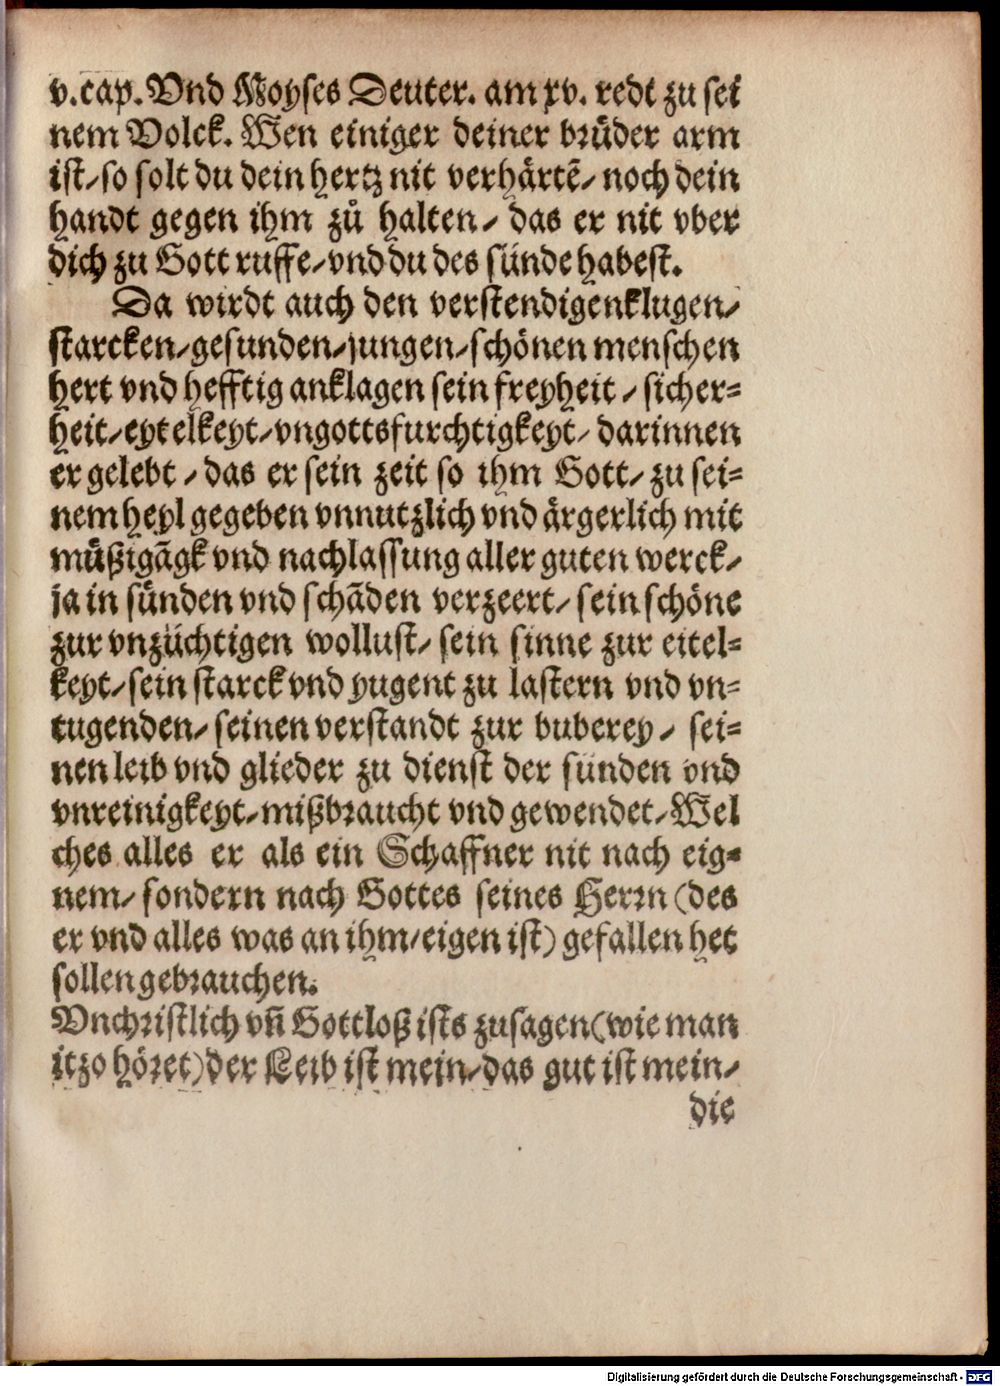 v.cap. Vnd Moyses Deuter. am xv. redt zu sei
nem Volck. Wen einiger deiner brüder arm
ist/ so solt du dein hertz nit verhärtē/ noch dein
handt gegen ihm zů halten/ das er nit vber
dich zu Gott ruffe/ vnd du des sünde habest.
Da wirdt auch den verstendigen klugen/
starcken/ gesunden/ jungen/ schönen menschen
hert vnd hefftig anklagen sein freyheit/ sicher=
heit/ eytelkeyt/ vngottsfurchtigkeyt/ darinnen
er gelebt/ das er sein zeit so ihm Gott/ zu sei=
nem heyl gegeben vnnutzlich vnd ärgerlich mit
müßigāgk vnd nachlassung aller guten werck/
ja in sünden vnd schāden verzeert/ sein schöne
zur vnzüchtigen wollust/ sein sinne zur eitel=
keyt/ sein starck vnd yugent zu lastern vnd vn=
tugenden/ seinen verstandt zur buberey/ sei=
nen leib vnd glieder zu dienst der sünden vnd
vnreinigkeyt/ mißbraucht vnd gewendet/ Wel
ches alles er als ein Schaffner nit nach eig=
nem/ sondern nach Gottes seines Herrn (des
er vnd alles was an ihm/ eigen ist) gefallen het
sollen gebrauchen.
Vnchristlich vñ Gottloß ists zusagen (wie man
itzo höret) der Leib ist mein/ das gut ist mein/
die
Digitalisierung gefördert durch die Deutsche Forschungsgemeinschaft - DFG